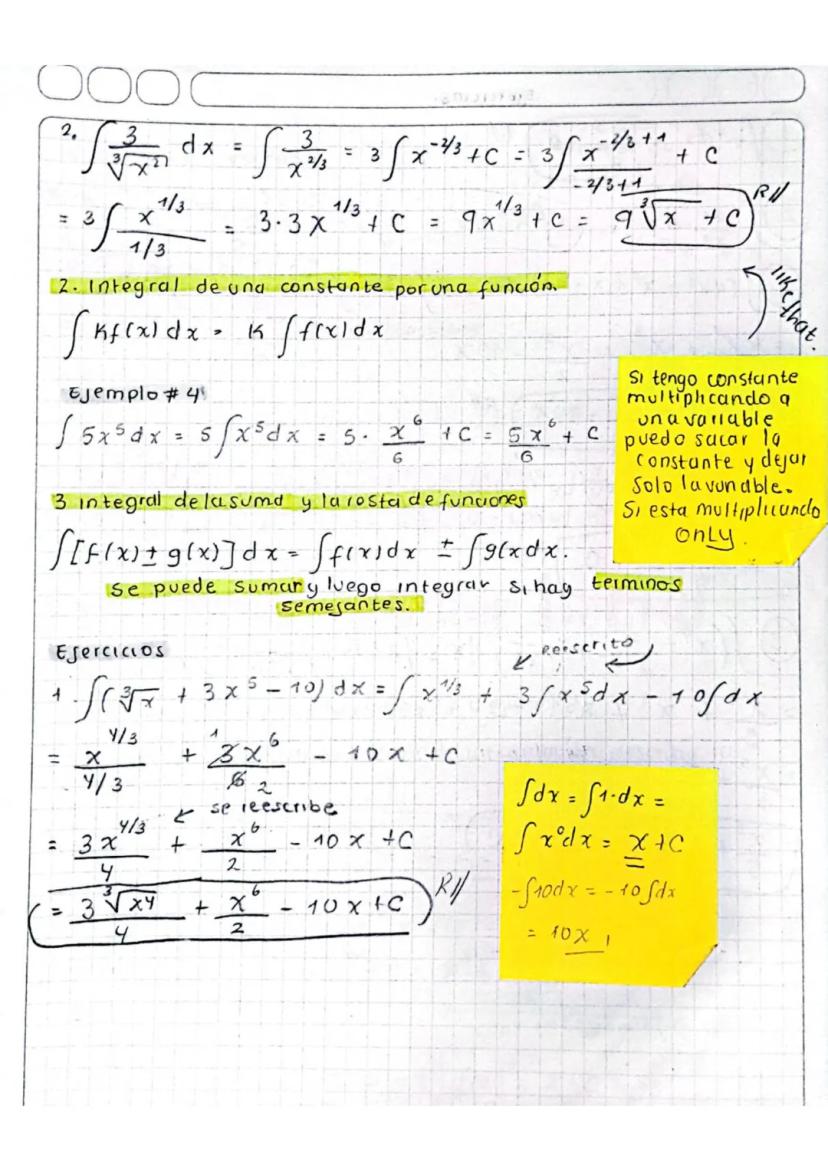 2. ∫ 3/∛x² dx = ∫ 3/x^2/3 = 3 ∫ x^-2/3 + C = 3 ∫ x^-2/3+1/-2/3+1 + C
= 3 ∫ x^1/3/1/3 = 3·3x^1/3 + C = 9x^1/3 + C = 9∛x + C R//
like that.
2. Integral de una constante por una función.
∫ Kf(x) dx = K ∫ f(x) dx
Ejemplo # 4
∫ 5x^5 dx = 5 ∫ x^5 dx = 5 · x^6/6 + C = 5x^6/6 + C
Si tengo constante
multiplicando a
una variable
puedo sacar la
constante y dejar
Solo la variable.
Si esta multiplicando
only.
3 integral de la suma y la resta de funciones
∫[f(x) ± g(x)] dx = ∫f(x) dx ± ∫g(x dx.
se puede sumar y luego integrar si hay terminos
semejantes.
Ejercicios
Reescrito
1. ∫(∛x + 3x^5 - 10) dx = ∫ x^1/3 + 3 ∫ x^5 dx - 10 ∫ dx
= x^4/3/4/3 + 1 3x^6/6 2 - 10x + C
se reescribe
= 3x^4/3/4 + x^6/2 - 10x + C
= 3∛x4/4 + x^6/2 - 10x + C R//
∫dx = ∫1·dx =
∫ x^0 dx = x + C
-∫10dx = -10 ∫dx
= 10x